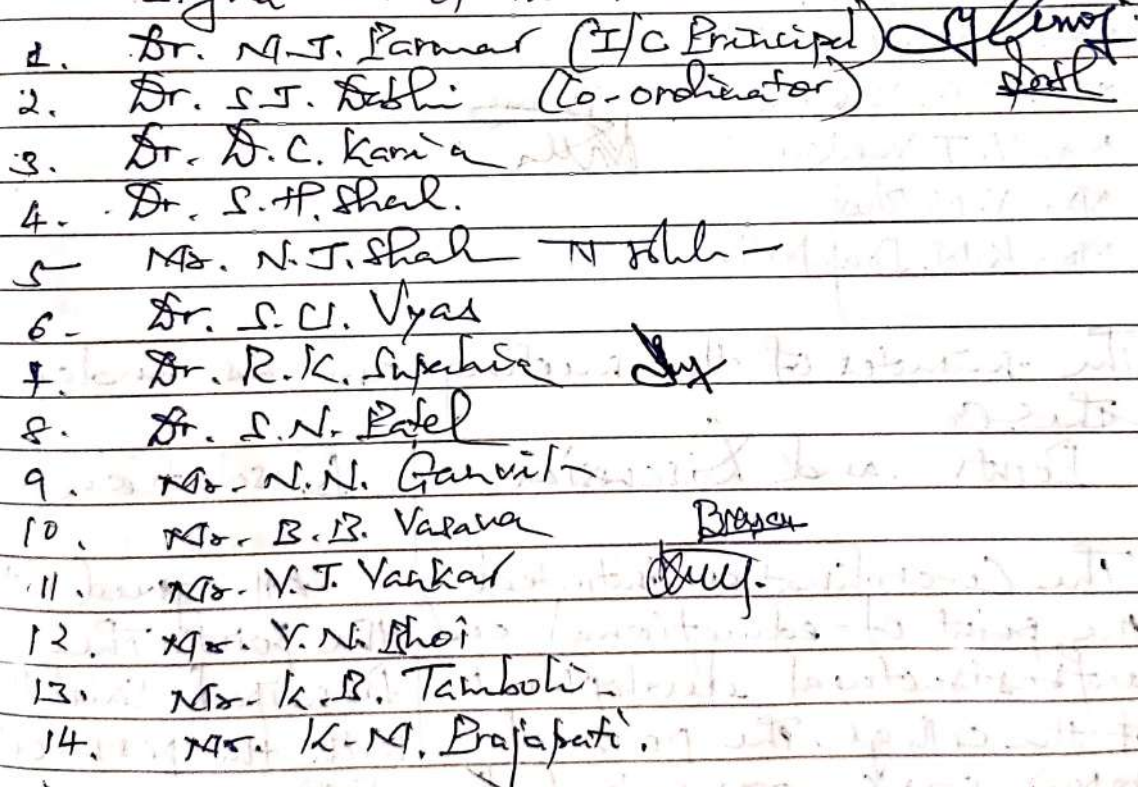 1. Dr. M.J. Parmar (I/C Principal)
2. Dr. S.J. Dabhi (Co-ordinator)
3. Dr. D.C. Karia
4. Dr. S.H. Shah.
5 Mr. N.J. Shah
6- Dr. S.U. Vyas
7 Dr. R.K. Supekia
8. Dr. S.N. Patel
9. Mr. N.N. Ganvit
10. Mr. B.B. Vasava
11. Mr. V.J. Vankar
12. Mr. Y.N. Bhoi
13. Mr. K.B. Tamboli
14. Mr. K.M. Prajapati.